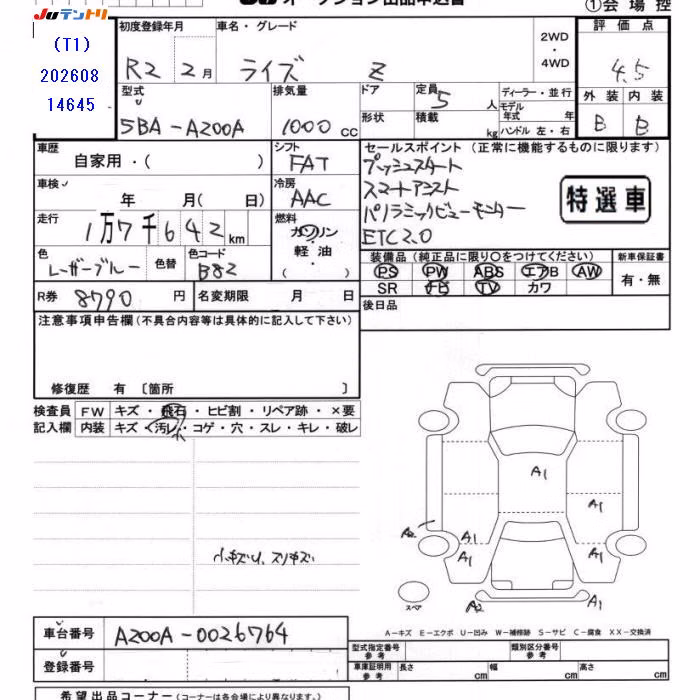 Juテントリ
オークション出品申込書
①会場控
(T1)
202608
14645
初度登録年月
R2 2月
車名・グレード
ライズ Z
2WD・4WD
評価点
4.5
型式
5BA-A200A
排気量
1000 cc
ドア
形状
定員 5 人
積載 kg
ディーラー・並行
モデル年式 年
ハンドル 左・右
外装 内装
B B
車歴
自家用・( )
シフト
FAT
車検 年 月( 日)
冷房
AAC
走行
1万7千642km
燃料
ガソリン
軽油
( )
色
レーザーブルー
色替
色コード
B82
R券 8790 円
名変期限 月 日
セールスポイント (正常に機能するものに限ります)
プッシュスタート
スマートアシスト
パノラミックビューモニター
ETC2.0
特選車
装備品 (純正品に限り○をつけてください)
新車保証書
PS PW ABS エアB AW
有・無
SR ナビ TV カワ
後日品
注意事項申告欄 (不具合内容等は具体的に記入して下さい)
修復歴 有 〔箇所 〕
検査員 FW キズ・飛石・ヒビ割・リペア跡・×要
記入欄 内装 キズ・汚レ・コゲ・穴・スレ・キレ・破レ
小
小キズU、スリキズ
A1
A1
A2
A1
A1
A1
A1
スペア
A2
A1
A-キズ E-エクボ U-凹み W-補修跡 S-サビ C-腐食 XX-交換済
車台番号 A200A-0026764
登録番号
型式指定番号 参考
類別区分番号 参考
車庫証明用 参考
長さ cm 幅 cm 高さ cm
希望出品コーナー (コーナーは各会場により異なります。)